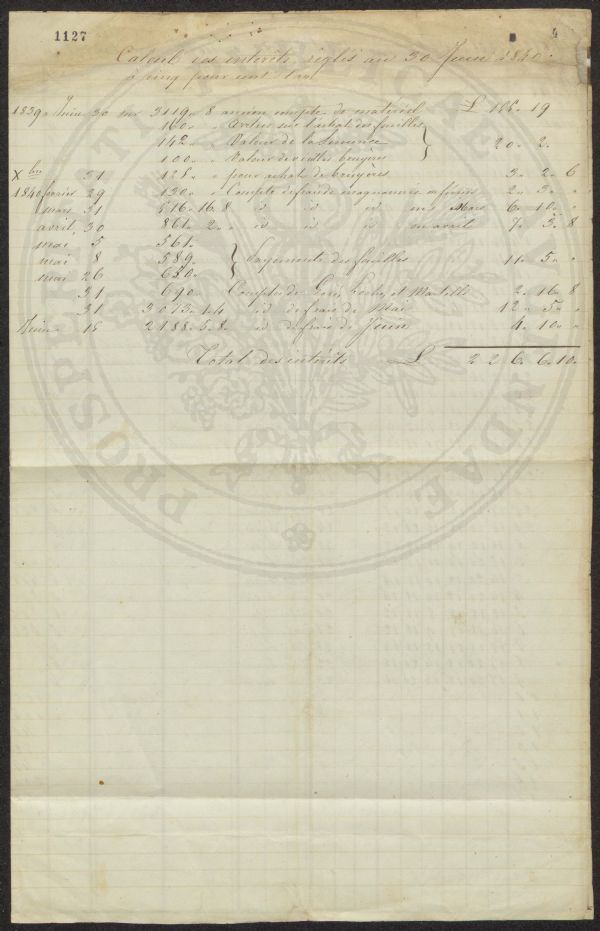 1127 4
Calcul des intérêts réglés au 30 Juin 1840.
à cinq pour cent l'an
1839. Juin 30 sur 3119. 8 ancien compte de matériel £ 156. 19
160. " sur l'achat des feuilles
142. " Valeur de la Semence 20. 2.
100. " Valeur de vieilles bruyères
Xbre 31 125. " pour achat de bruyères 3. 2. 6
1840 février 29 130. " Compte de fraude magnanerie février 2. 3. "
mars 31 516. 16. 8 id id id mars 6. 10. "
avril 30 861. 2. " id id id avril 7. 3. 8
mai 5 561.
mai 8 589. payements des feuilles 11. 5. "
mai 26 680.
31 690. Comptes de et 2. 16. 8
31 id de frais de Mai 12. 5. "
Juin 15 2188. 5. 8. id de frais de Juin 4. 10. "
Total des intérêts £ 226. 6. 10.
PROSPERITATI PUBLICAE AUGENDAE